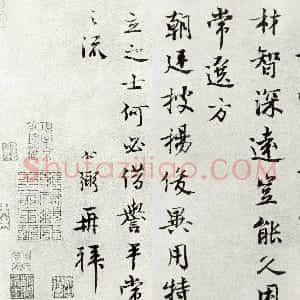 材智深達豈能久困
常選方
朝廷搜揚俊異用特
立之士何必借譽平常
之流
公弼再拜
Shufaziliao.com